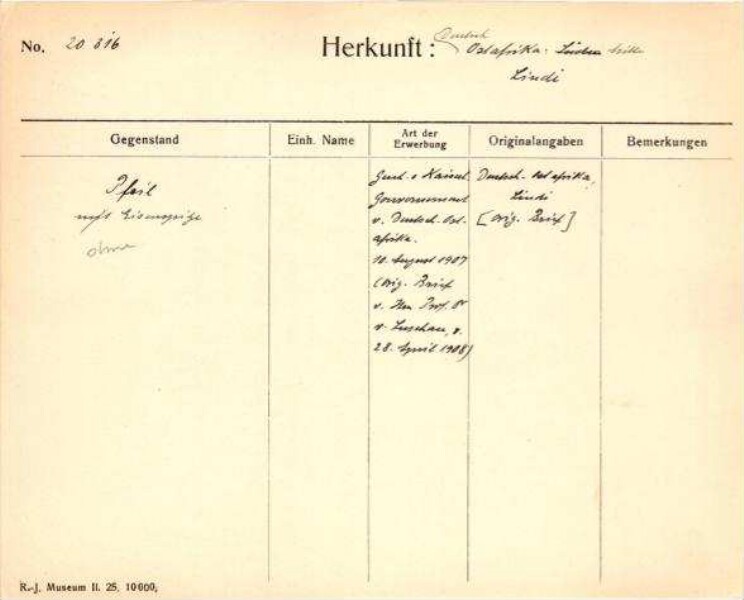 No. 20 816
Herkunft: Deutsch Ostafrika.
Lindi
Gegenstand
Einh. Name
Art der Erwerbung
Originalangaben
Bemerkungen
Pfeil
Eisenspitze
ohne
Gesch. v Kaiserl.
Gouvernement
v. Deutsch. Ost-
afrika.
10. August 1907
(orig. Brief
v. Hrn Prof. Dr
v. Luschan, v.
28. April 1908)
Deutsch. Ostafrika,
Lindi
[orig. Brief]
R.-J. Museum II. 25. 10000.